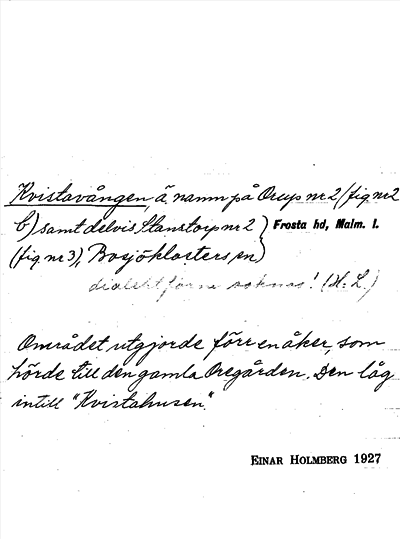 Kvistavången, ä. namn på Orup nr 2 (fig nr 2
b) samt delvis Stanstorp nr 2 } Frosta hd, Malm. l.
(fig nr 3), Bosjöklosters sn)
dialektform saknas! (H. L.)
Området utgjorde förr en åker, som
hörde till den gamla Oregården. Den låg
intill "Kvistahusen".
EINAR HOLMBERG 1927